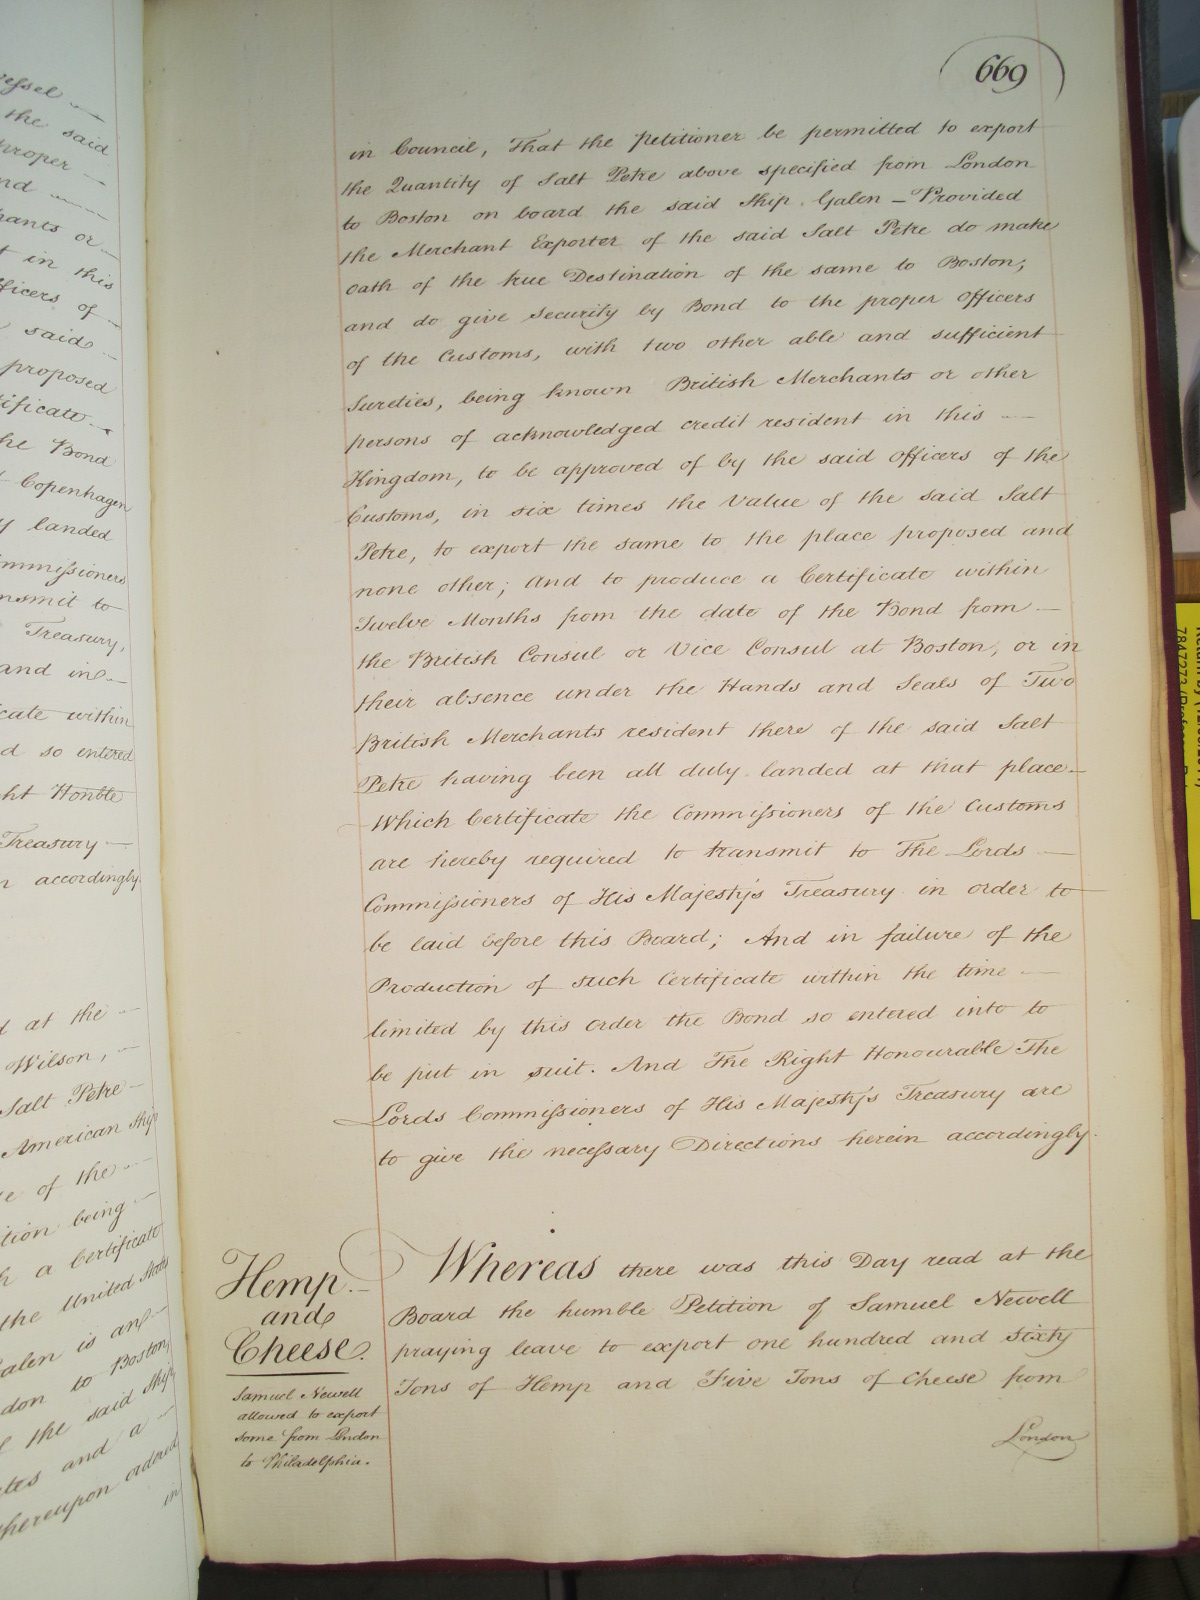 essel
the said
proper
nd
hants or
t in this
ficers of
said
proposed
tificate
he Bond
Copenhagen
y landed
mmissioners
nsmit to
Treasury,
and in
cate within
d so entered
ht Honble
Treasury
n accordingly
d at the
Wilson,
Salt Petre
American Ship
e of the
ition being
h a Certificate
the United States
Galen is an
don to Boston,
f the said Ship
ates and a
thereupon ordered
in
669
in Council, That the Petitioner be permitted to export
the Quantity of Salt Petre above specified from London
to Boston on board the said Ship Galen – Provided
the Merchant Exporter of the said Salt Petre do make
oath of the true Destination of the same to Boston;
and do give security by Bond to the proper Officers
of the Customs, with two other able and sufficient
Sureties, being known British Merchants or other
persons of acknowledged credit resident in this —
Kingdom, to be approved of by the said Officers of the
Customs, in six times the Value of the said Salt
Petre, to export the same to the place proposed and
none other; And to produce a Certificate within
Twelve Months from the date of the Bond from —
the British Consul or Vice Consul at Boston, or in
their absence under the Hands and Seals of Two
British Merchants resident there of the said Salt
Petre having been all duly landed at that place –
Which Certificate the Commissioners of the Customs
are hereby required to transmit to The Lords —
Commissioners of His Majesty's Treasury in order to
be laid before this Board; And in failure of the
Production of such Certificate within the time —
limited by this order the Bond so entered into to
be put in suit. And The Right Honourable The
Lords Commissioners of His Majesty's Treasury are
to give the necessary Directions herein accordingly.
Hemp
and
Cheese.
Samuel Newell
allowed to export
some from London
to Philadelphia.
Whereas there was this Day read at the
Board the humble Petition of Samuel Newell
praying leave to export one hundred and sixty
Tons of Hemp and Five Tons of Cheese from
London